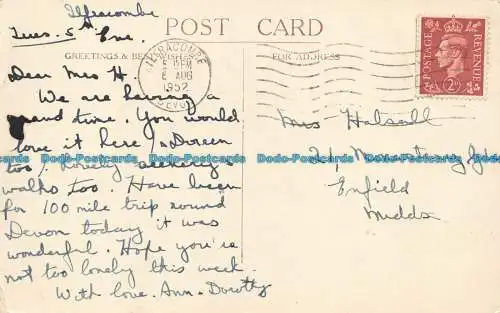 Ilfracombe
Tues. 5th Eve.
POST CARD
GREETINGS & BEST WISHES
FOR ADDRESS
ILFRACOMBE
6 AUG
1952
DEVON
POSTAGE
REVENUE
2D
Dear Mrs H.
We are having a
grand time. You would
love it here (& Doreen
too). Lovely scenery &
walks too. Have been
for 100 mile trip round
Devon today it was
wonderful. Hope you're
not too lonely this week.
With love. Ann - Dorothy
Mrs Halsall
Enfield
Middx
Dodo-Postcards Dodo-Postcards Dodo-Postcards Dodo-Postcards Dodo-Postcards